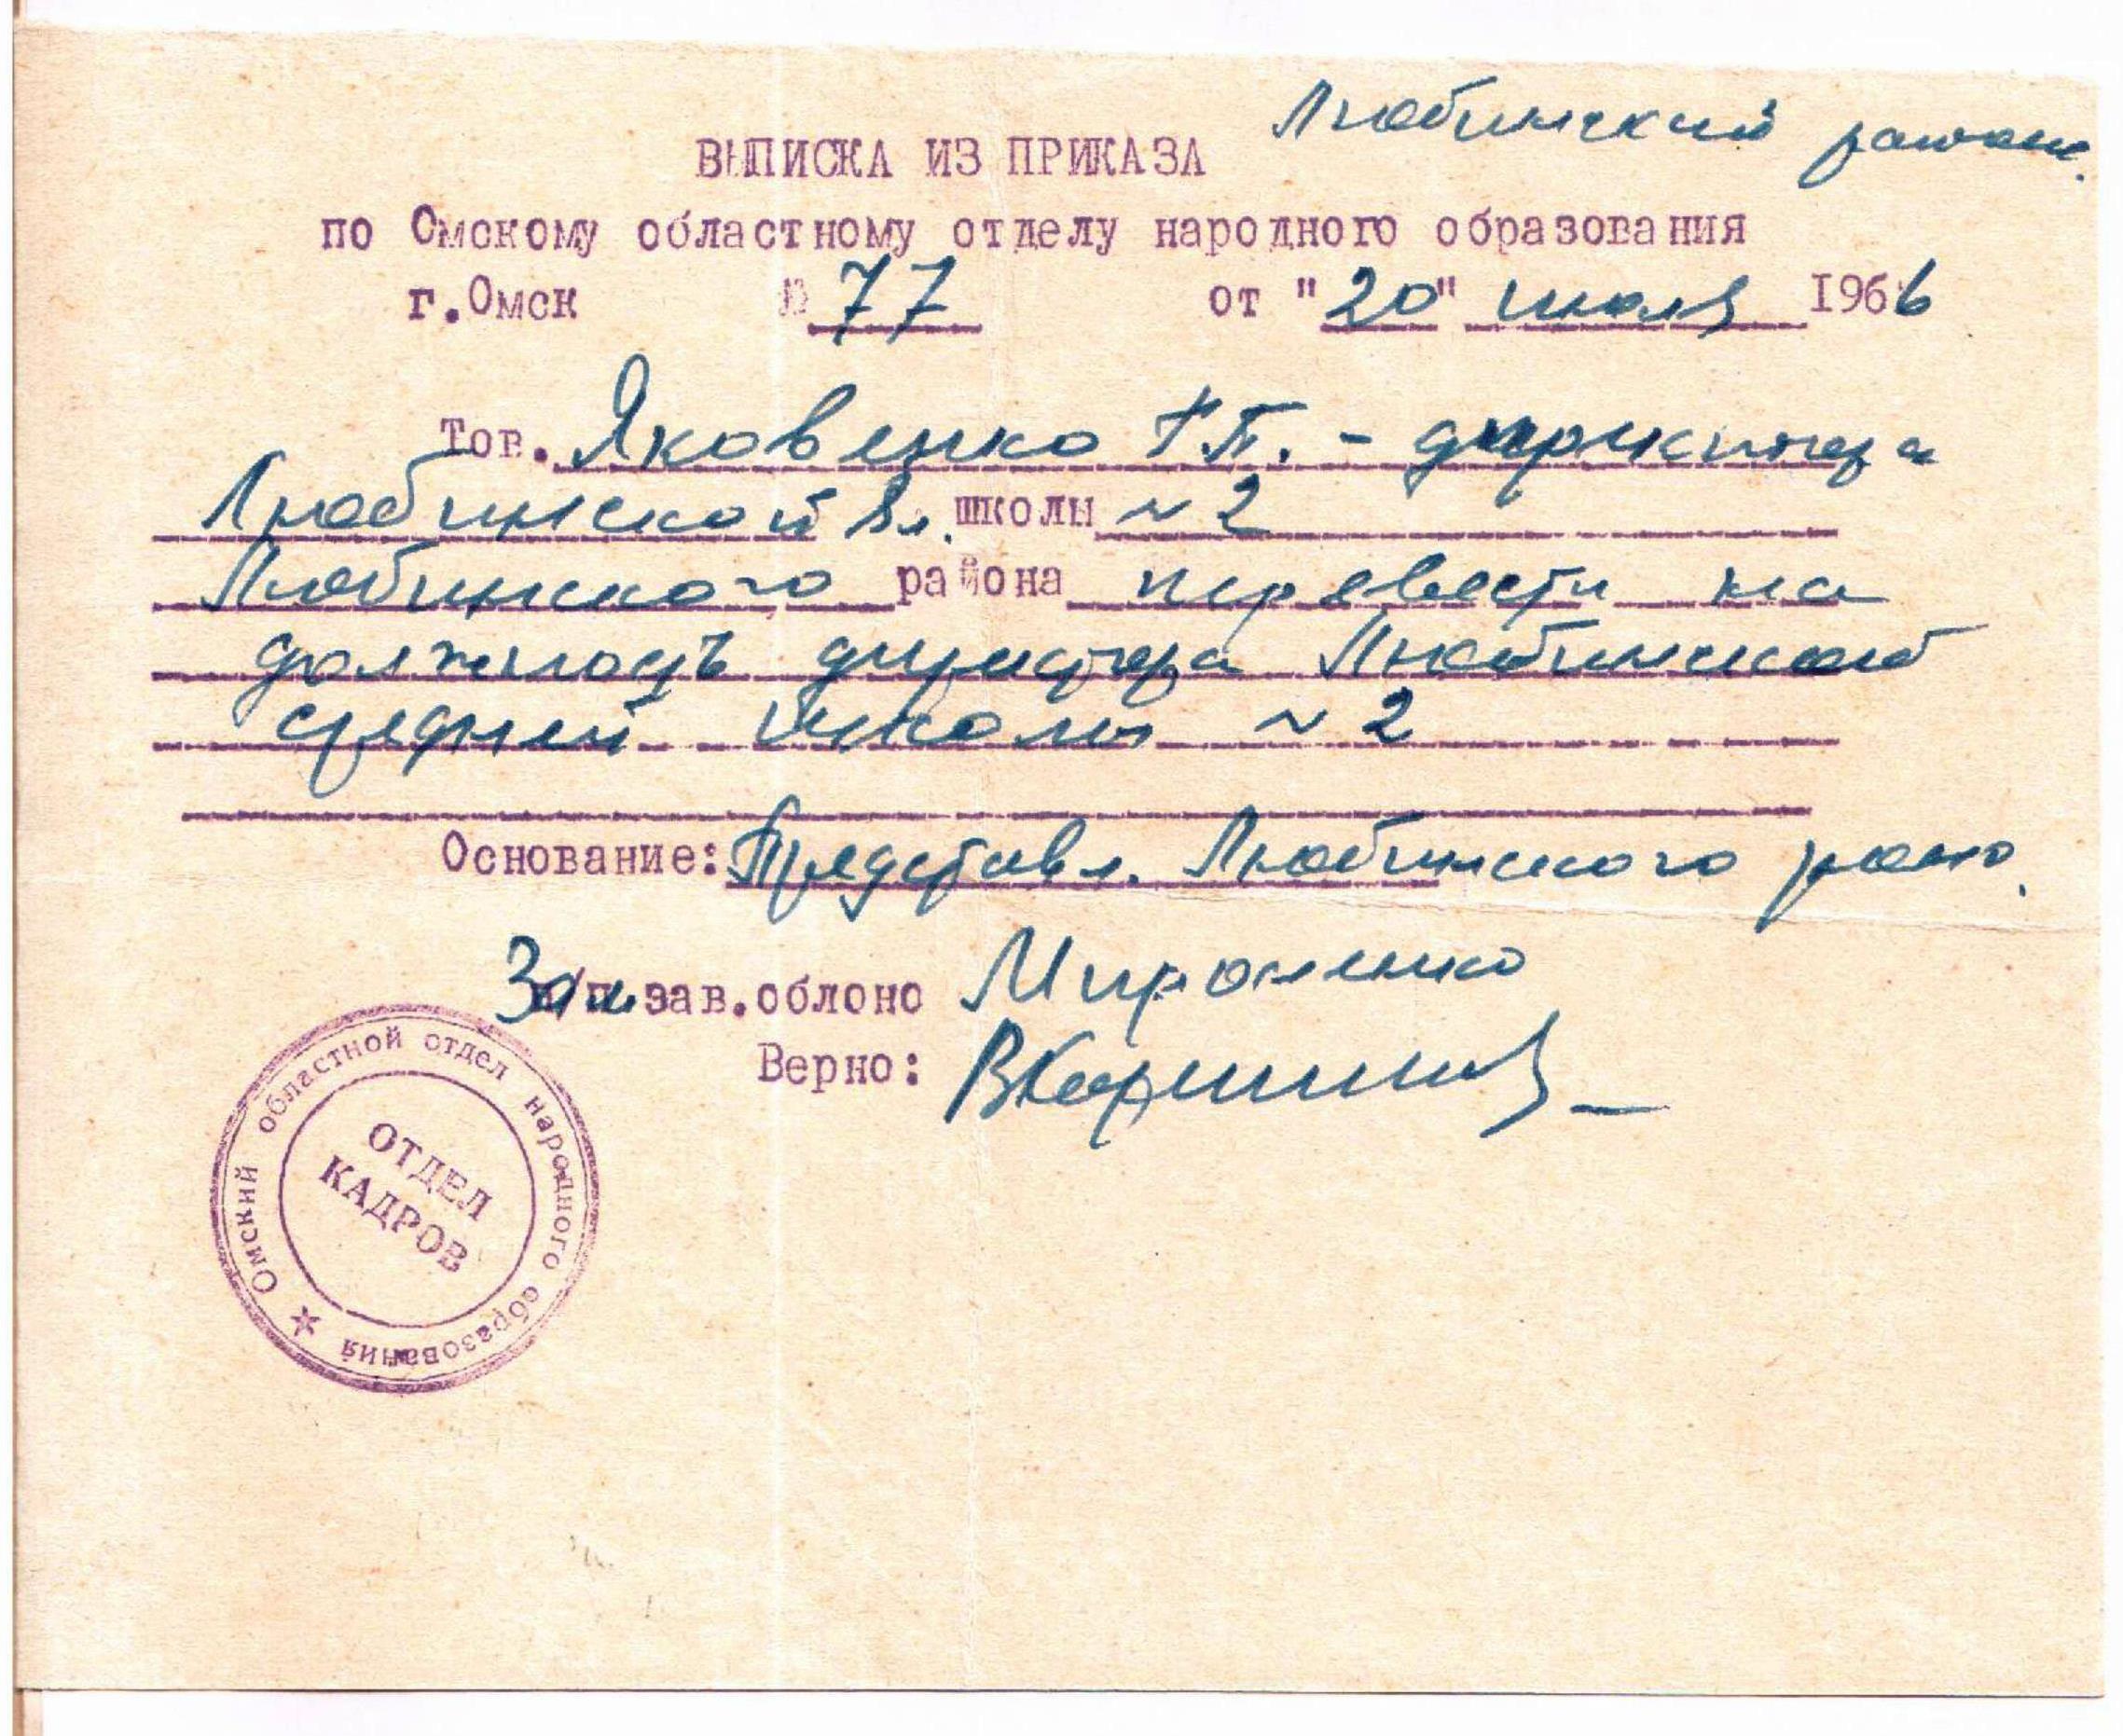 Любинский район.
ВЫПИСКА ИЗ ПРИКАЗА
по Омскому областному отделу народного образования
г.Омск № 77 от "20" июля 1966
Тов. Яковенко Г.П. - директора
Любинской 8л. школы № 2
Любинского района перевести на
должность директора Любинской
средней школы № 2
Основание: Представл. Любинского районо.
Зам. зав.облоно Мироненко
Верно:
Омский областной отдел народного образования
ОТДЕЛ
КАДРОВ